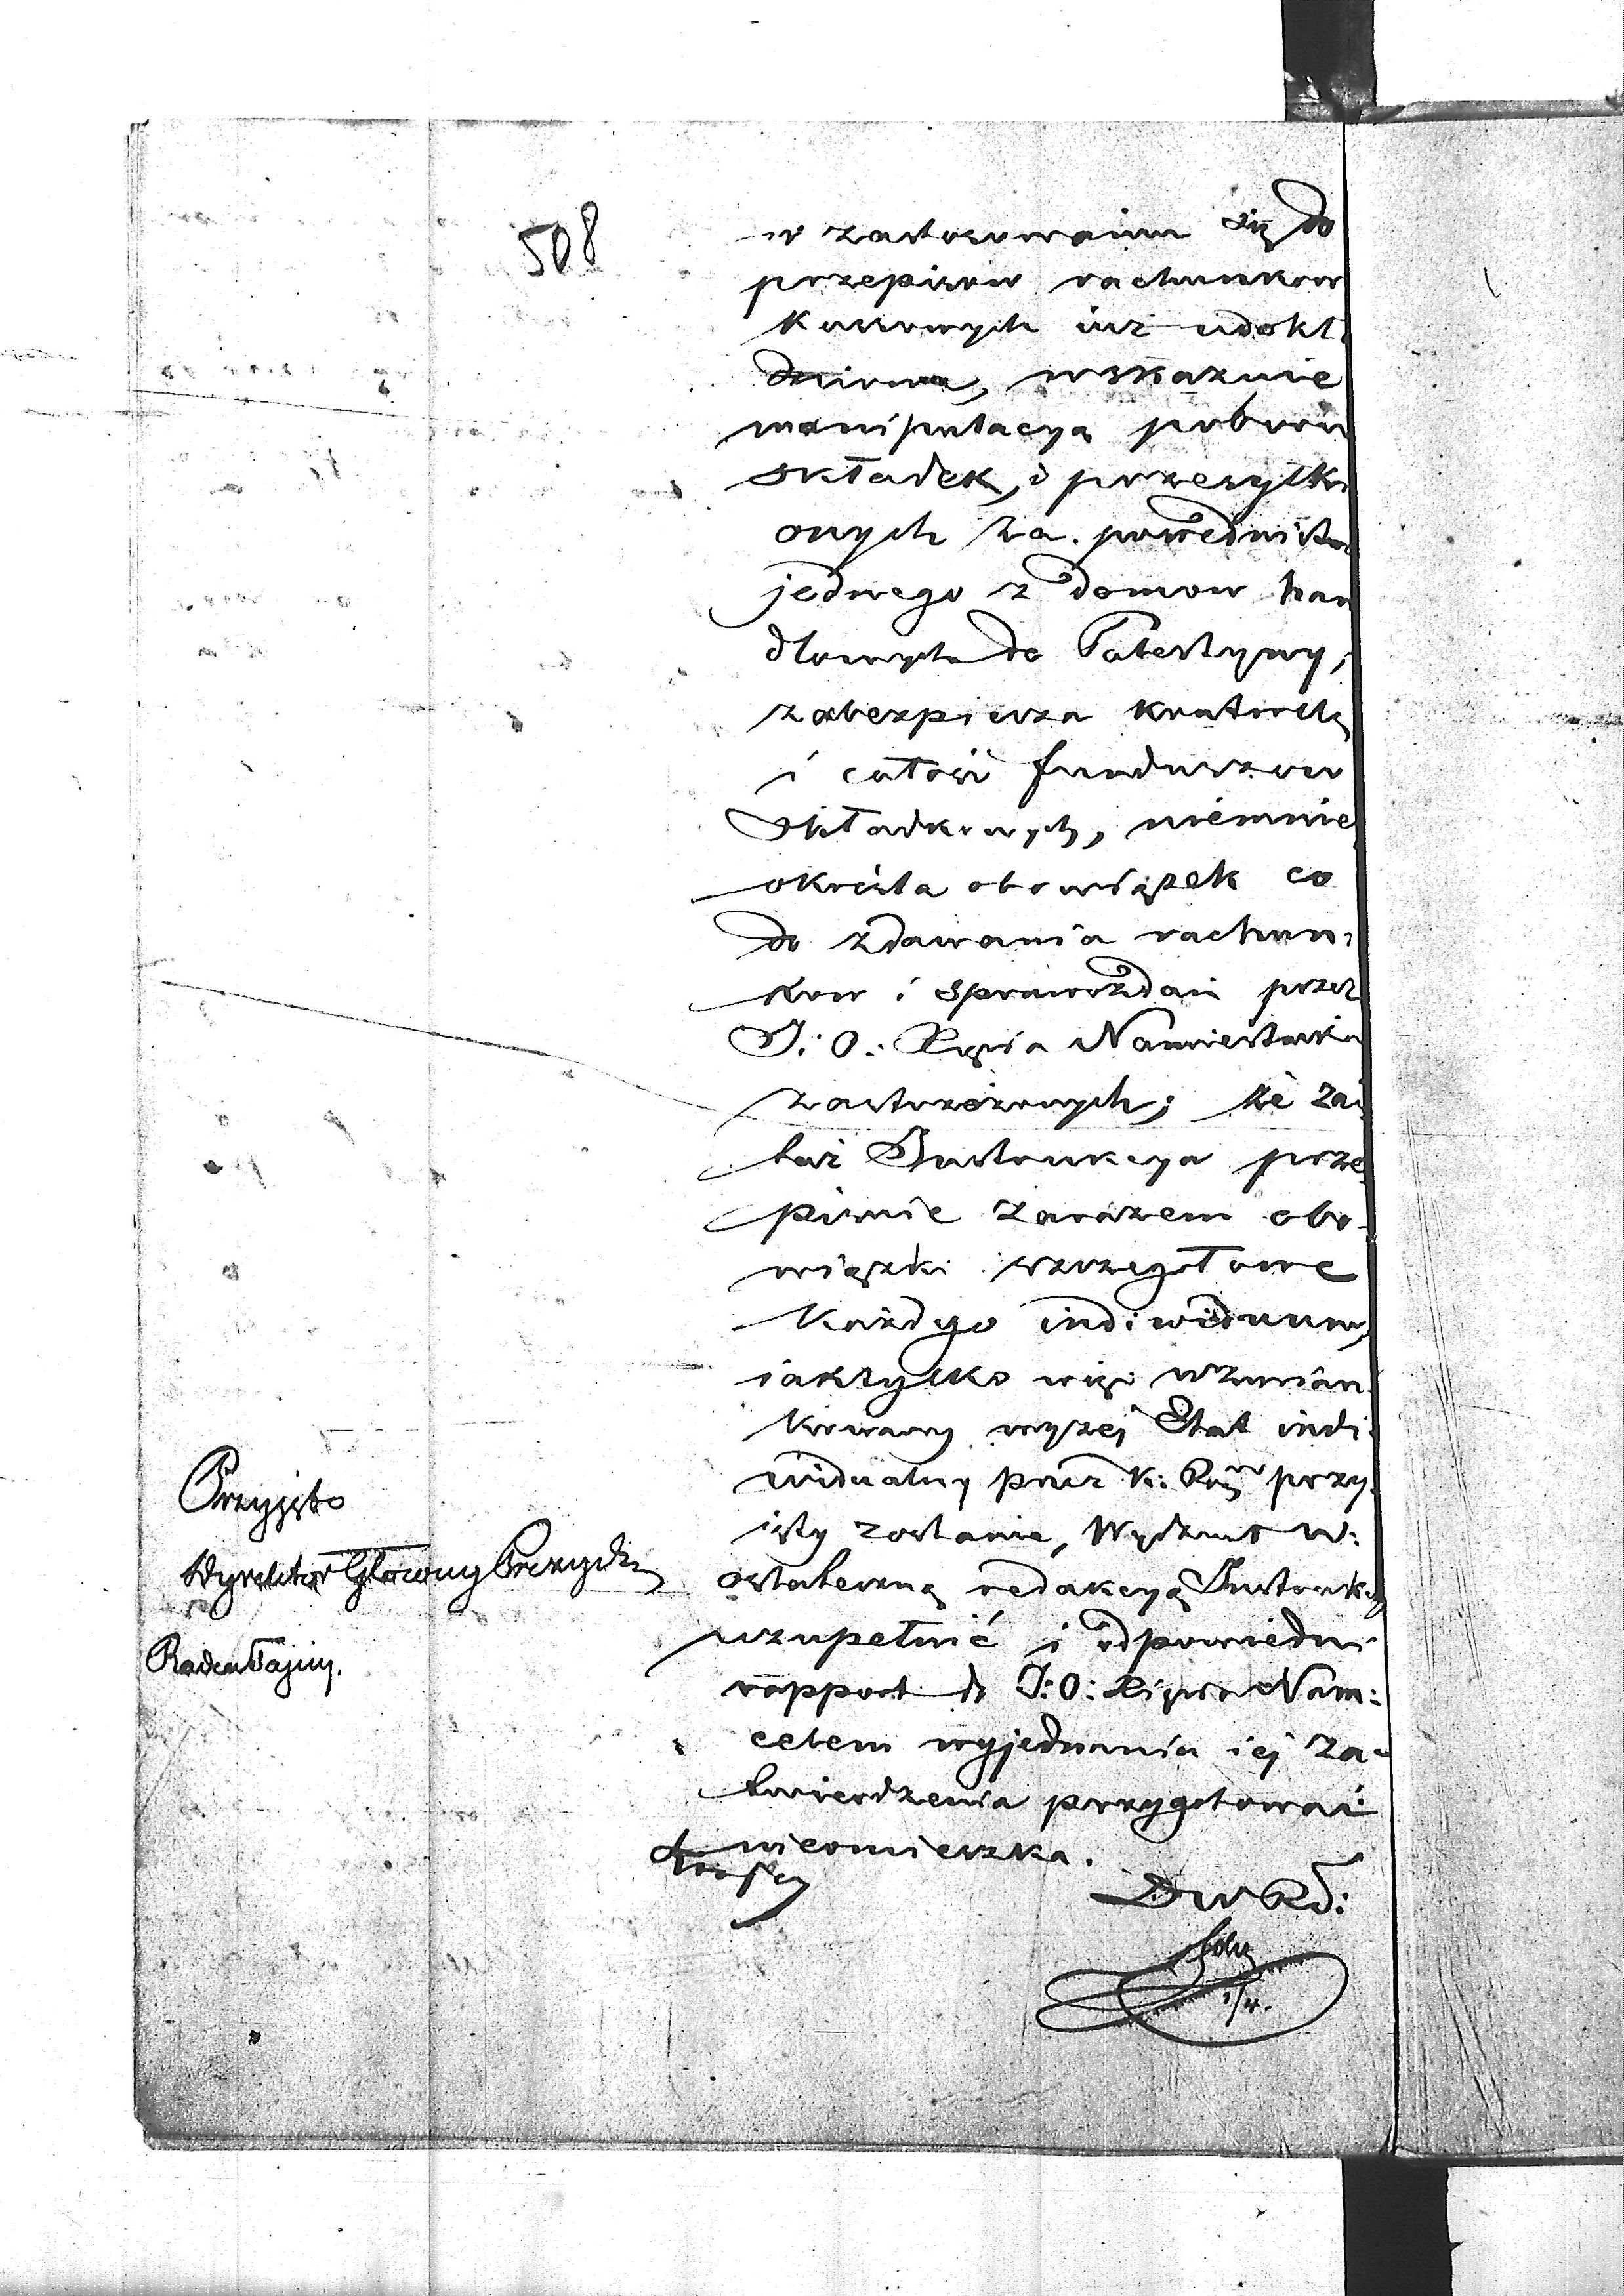 508
w zastosowaniu się do
przepisow rachunkow
kassowych iuz udokła
dniona, wskazuie
manipulacyą poboru
składek, i przesyłki
onych za pośrednictw
jednego z domow han
dlowych do Palestyny,
zabezpiecza kontrolę
i całość funduszow
składkowych, niemnie
określa obowiązek co
do zdawania rachun-
kow i sprawozdań przez
J: O: Xięcia Namiestnika
zastrzeżonych; że zaś
taż Instrukcya prze
pisuie zarazem obo-
wiązki szczegółowe
każdego individuum,
iaktylko więc wzmian
kowany wyżej Etat indi
widualny przez K: Rząd przy
ięty zostanie, Wydział W:
ostateczną redakcyą Instrukcyi
uzupełnić i odpowiedni
rapport do J: O: Xięcia Nam:
celem wyjednania iej za-
twierdzenia przygotować
nieomieszka.
Przyjęto
Dyrektor Główny Prezyd:
Radca Tajny.
DWRd:
1/4.